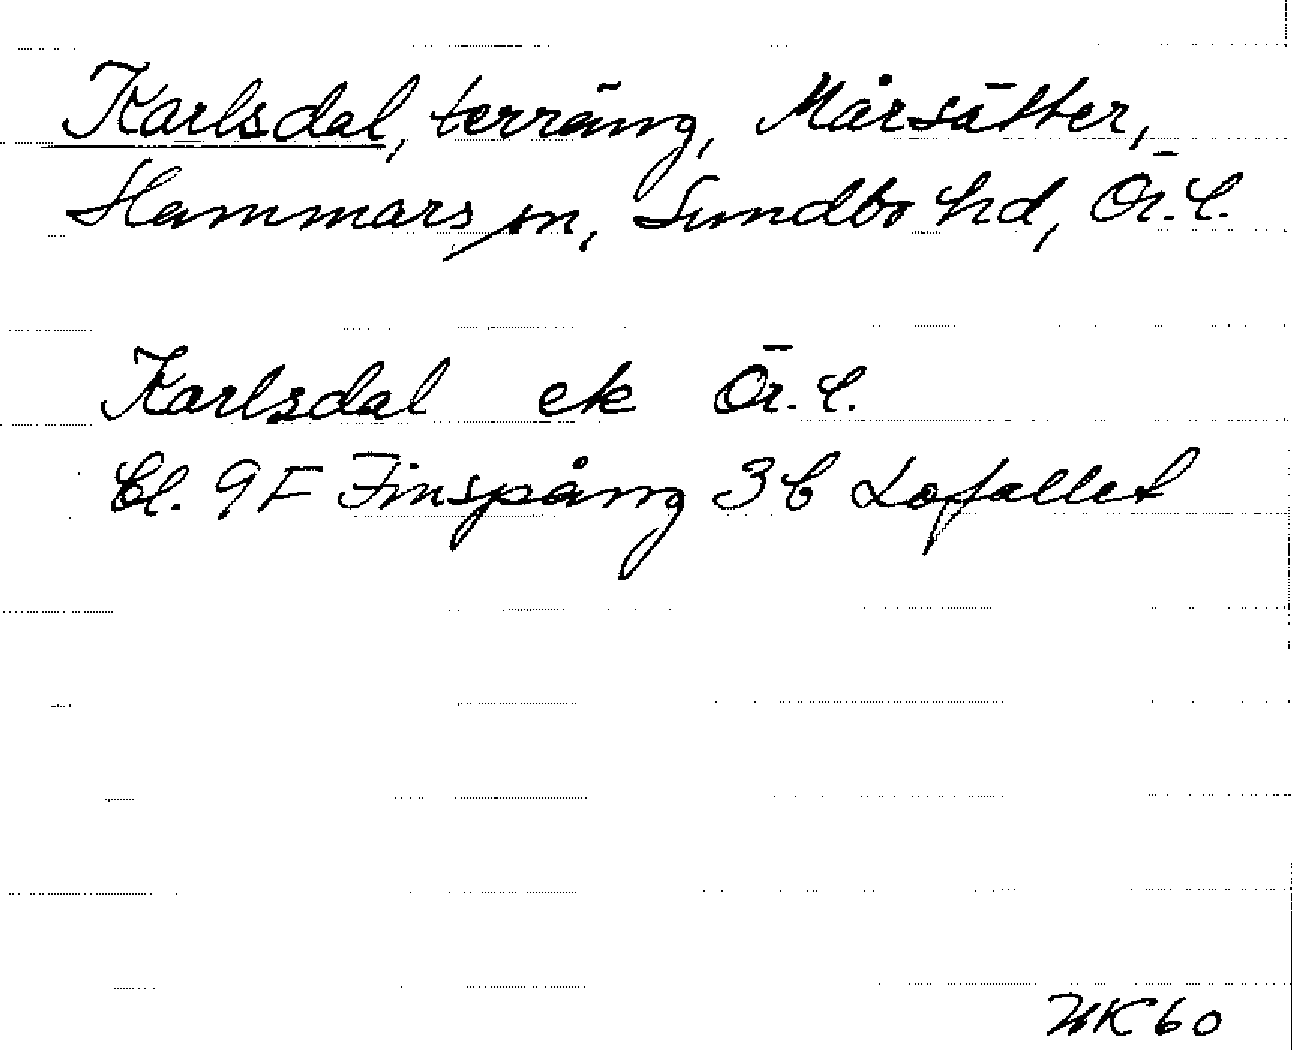 Karlsdal, terräng, Mårsätter,
Hammars sn, Sundbo hd, Ör. l.
Karlsdal ek Ör. l.
Bl. 9F Finspång 3b Lofallet
60